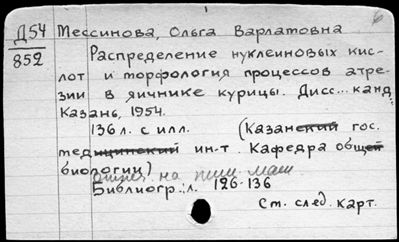 Д54 Тессинова, Ольга Варлатовна
852
Распределение нуклеиновых кис-
лот и торфология процессов атре-
зии в яичнике курицы. Дисс... канд
Казань, 1954.
136 л. с илл. (Казанский гос.
тедицинский ин-т. Кафедра общей
биологии)
на пиш. маш.
Библиогр.: л. 126-136
См. след. карт.